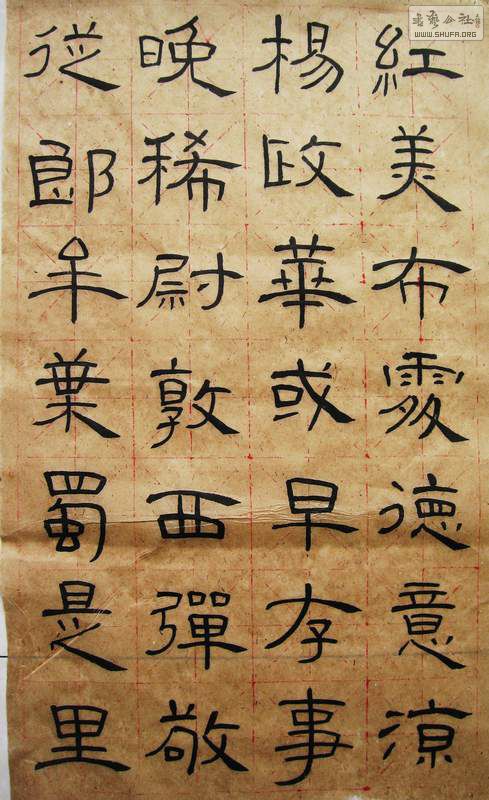 紅美布德意涼
楊政華或早存事
晚稀尉敦西彈敬
従郎牟蜀是里
書藝公社
WWW.SHUFA.ORG